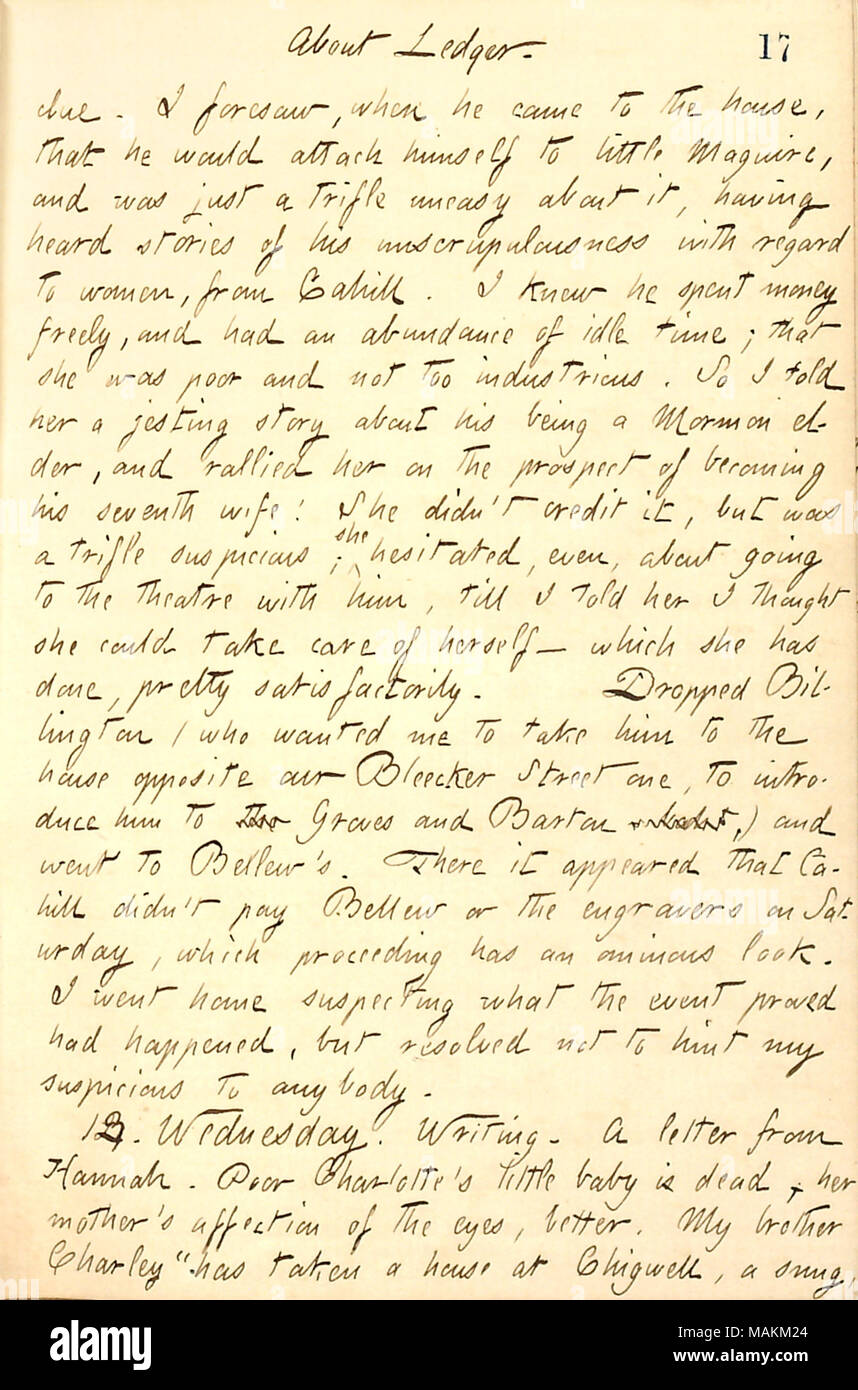 About Ledger.
17
due. I foresaw, when he came to the house,
that he would attach himself to little Maguire,
and was just a trifle uneasy about it, having
heard stories of his unscrupulousness with regard
to women, from Cahill. I knew he spent money
freely, and had an abundance of idle time; that
she was poor and not too industrious. So I told
her a jesting story about his being a Mormon el-
der, and rallied her on the prospect of becoming
his seventh wife! She didn't credit it, but was
a trifle suspicious; she hesitated, even, about going
to the theatre with him, till I told her I thought
she could take care of herself — which she has
done, pretty satisfactorily. Dropped Bil-
lington (who wanted me to take him to the
house opposite our Bleecker Street one, to intro-
duce him to the Groves and Barton,) and
went to Bellew's. There it appeared that Ca-
hill didn't pay Bellew or the engravers on Sat-
urday, which proceeding has an ominous look.
I went home suspecting what the event proved
had happened, but resolved not to hint my
suspicions to anybody.
12. Wednesday. Writing. A letter from
Hannah. Poor Charlotte's little baby is dead, her
mother's affection of the eyes, better. My brother
Charley "has taken a house at Chigwell, a snug,
alamy
Image ID: MAKM24
www.alamy.com